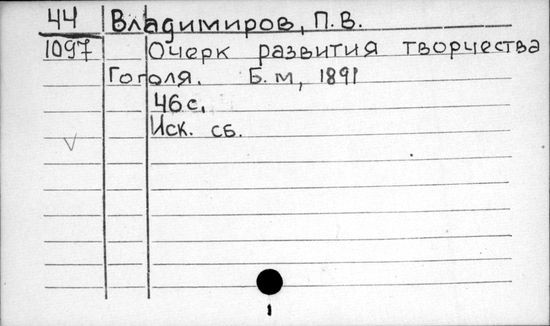 44 Владимиров, П.В.
1097 Очерк развития творчества
Гоголя. Б.м, 1891
46 с.
Иск. сб.
1